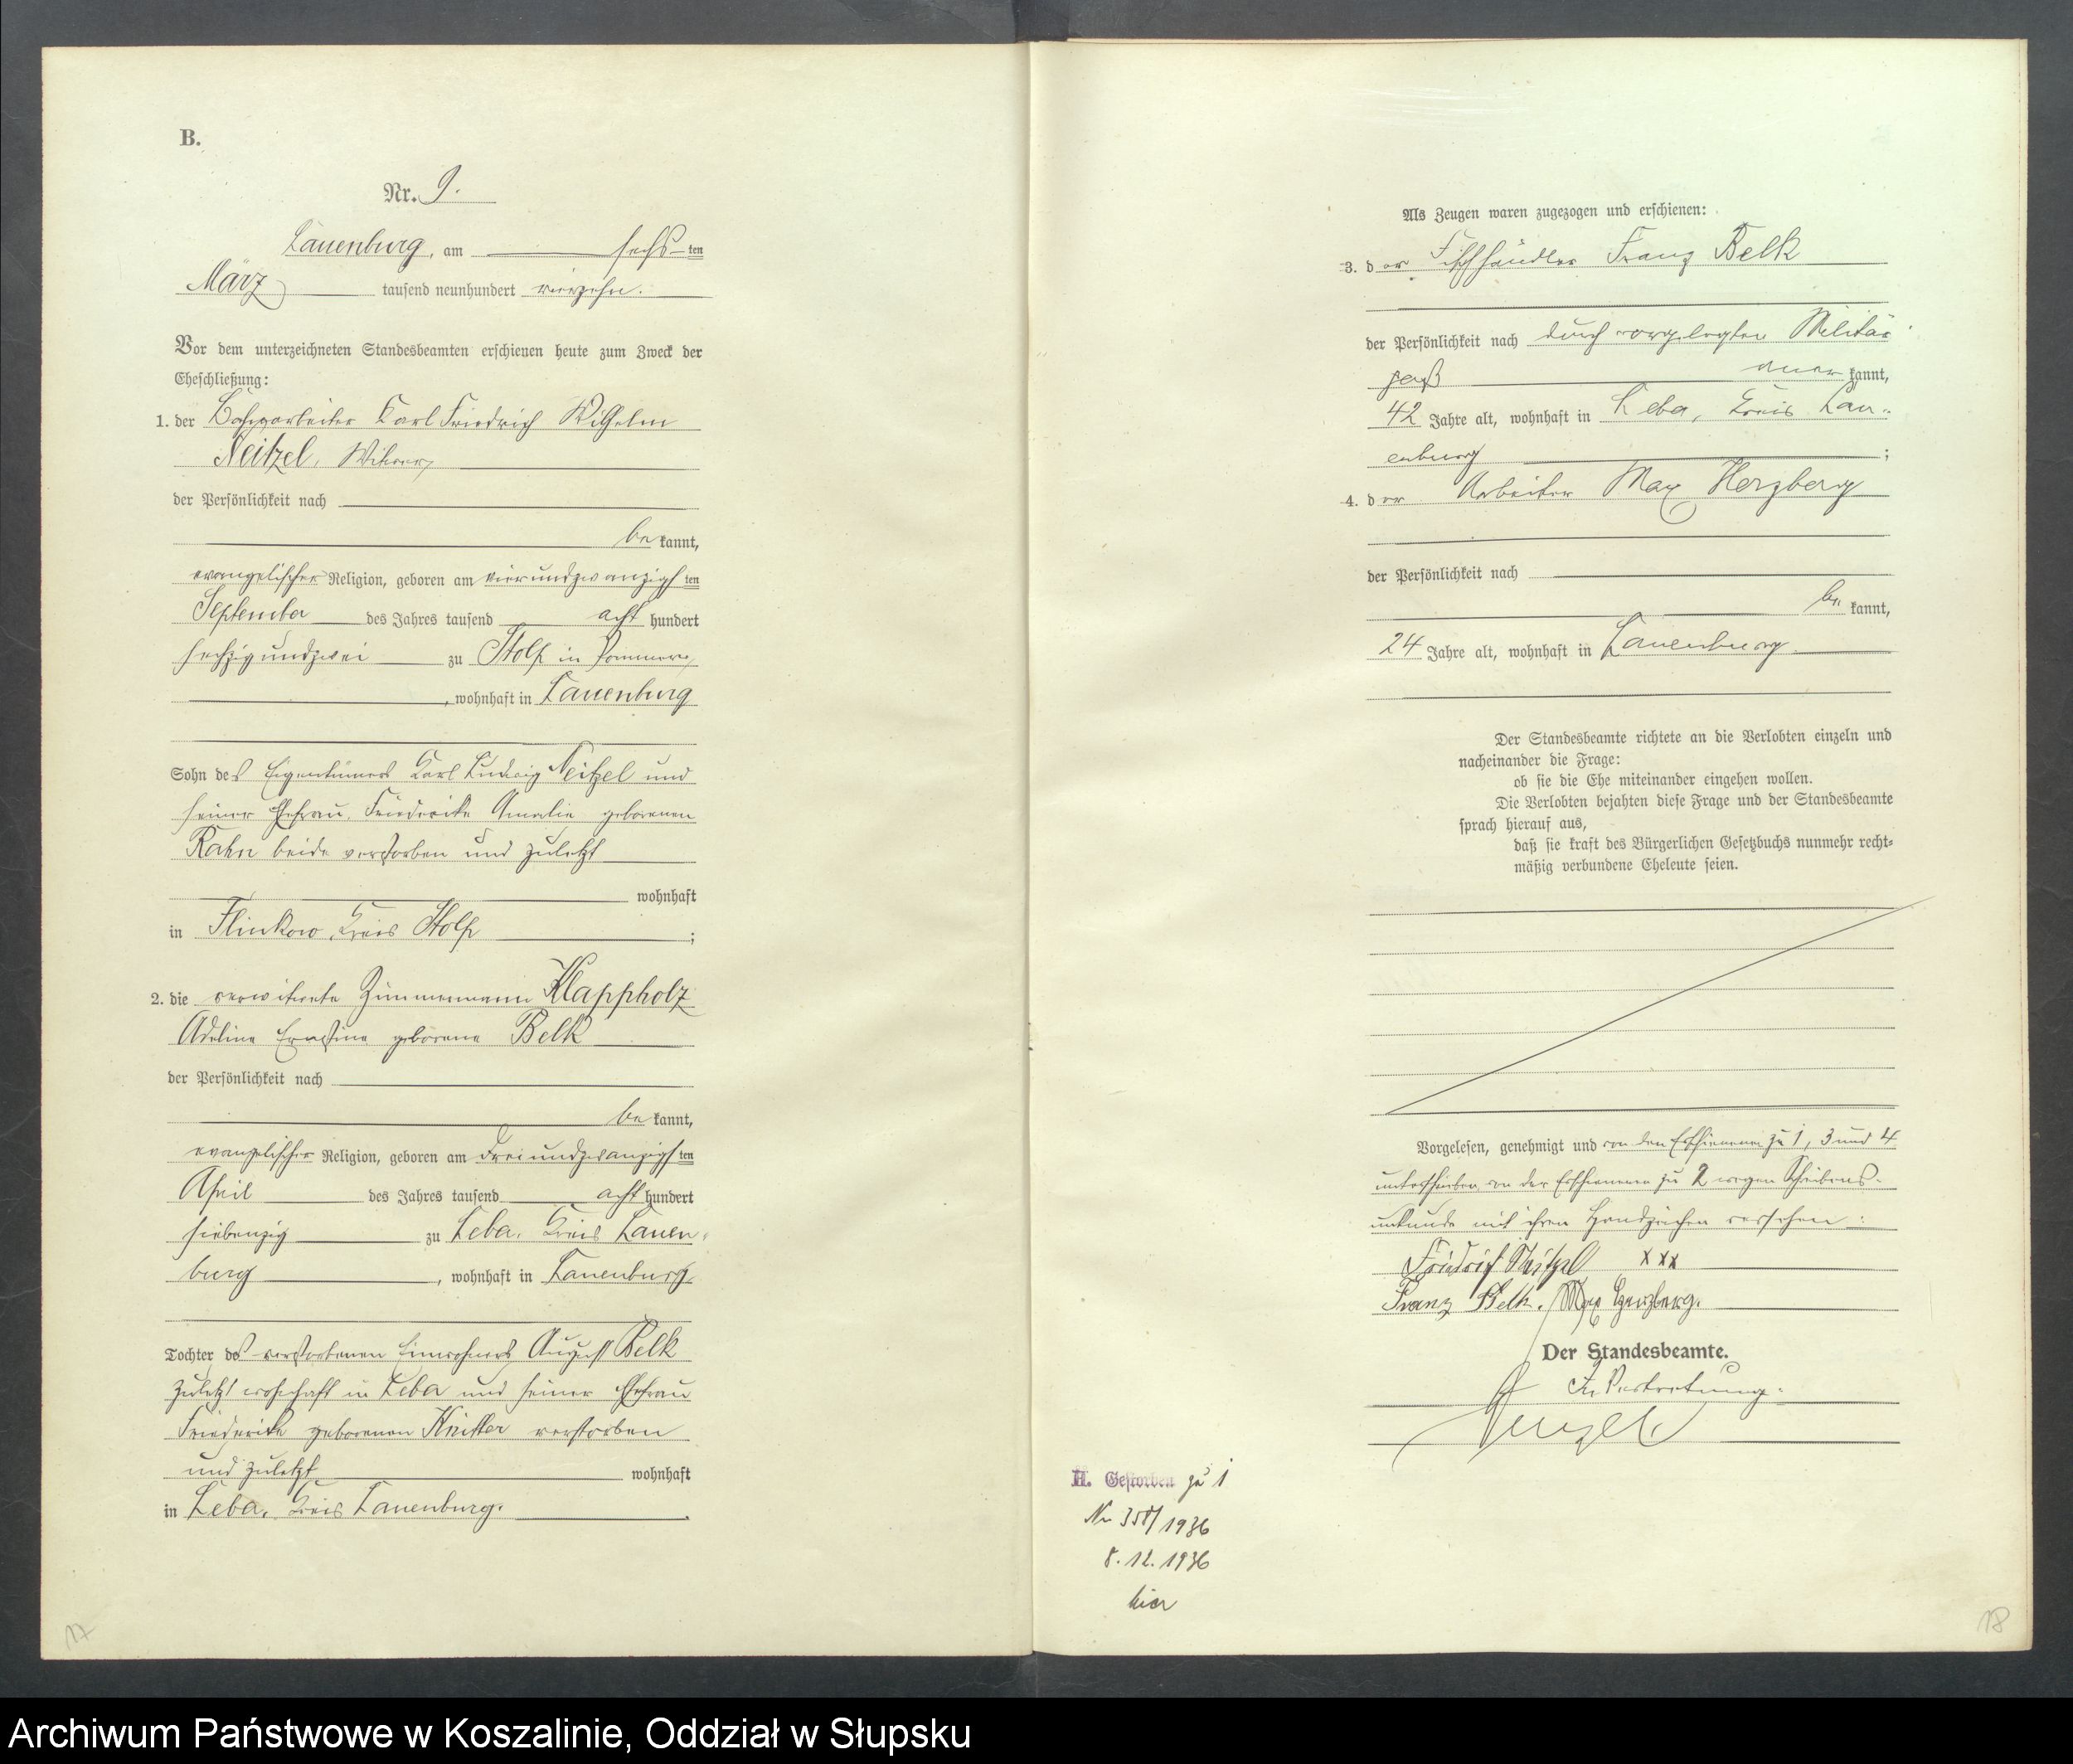 B.
Nr. 9.
Lauenburg, am sechsten
März tausend neunhundert vierzehn.
Vor dem unterzeichneten Standesbeamten erschienen heute zum Zweck der
Eheschließung:
1. der Bahnarbeiter Karl Friedrich Wilhelm
Neitzel, Witwer,
der Persönlichkeit nach
be kannt,
evangelischer Religion, geboren am vierundzwanzigsten
September des Jahres tausend acht hundert
sechzig und zwei zu Stolp in Pommern,
, wohnhaft in Lauenburg
Sohn des Eigentümers Karl Ludwig Neitzel und
seiner Ehefrau, Friederike Amalie geborenen
Rahn beide verstorben und zuletzt
wohnhaft
in Flinkow, Kreis Stolp ;
2. die verwitwete Zimmermann Klappholz
Adeline Ernstine geborene Belk
der Persönlichkeit nach
be kannt,
evangelischer Religion, geboren am dreiundzwanzigsten
April des Jahres tausend acht hundert
siebenzig zu Leba, Kreis Lauen-
burg , wohnhaft in Lauenburg,
Tochter des verstorbenen Einwohners August Belk
zuletzt wohnhaft in Leba und seiner Ehefrau
Friederike geborenen verstorben
und zuletzt wohnhaft
in Leba, Kreis Lauenburg.
17
Als Zeugen waren zugezogen und erschienen:
3. der Fischhändler Franz Belk
der Persönlichkeit nach durch vorgelegten Militär-
paß aner kannt,
42 Jahre alt, wohnhaft in Leba, Kreis Lau-
enburg ;
4. der Arbeiter Max Herzberg
der Persönlichkeit nach
be kannt,
24 Jahre alt, wohnhaft in Lauenburg.
Der Standesbeamte richtete an die Verlobten einzeln und
nacheinander die Frage:
ob sie die Ehe miteinander eingehen wollen.
Die Verlobten bejahten diese Frage und der Standesbeamte
sprach hierauf aus,
daß sie kraft des Bürgerlichen Gesetzbuchs nunmehr recht-
mäßig verbundene Eheleute seien.
Vorgelesen, genehmigt und von den Erschienenen zu 1, 3 und 4
unterschrieben, von der Erschienenen zu 2 wegen Schreibens-
unkunde mit ihren Handzeichen versehen:
Friedrich Neitzel xxx
Franz Belk. Max Herzberg.
Der Standesbeamte.
In Vertretung:
H. Gestorben zu 1
Nr 358/1936
8.12.1936
hier
18
Archiwum Państwowe w Koszalinie, Oddział w Słupsku